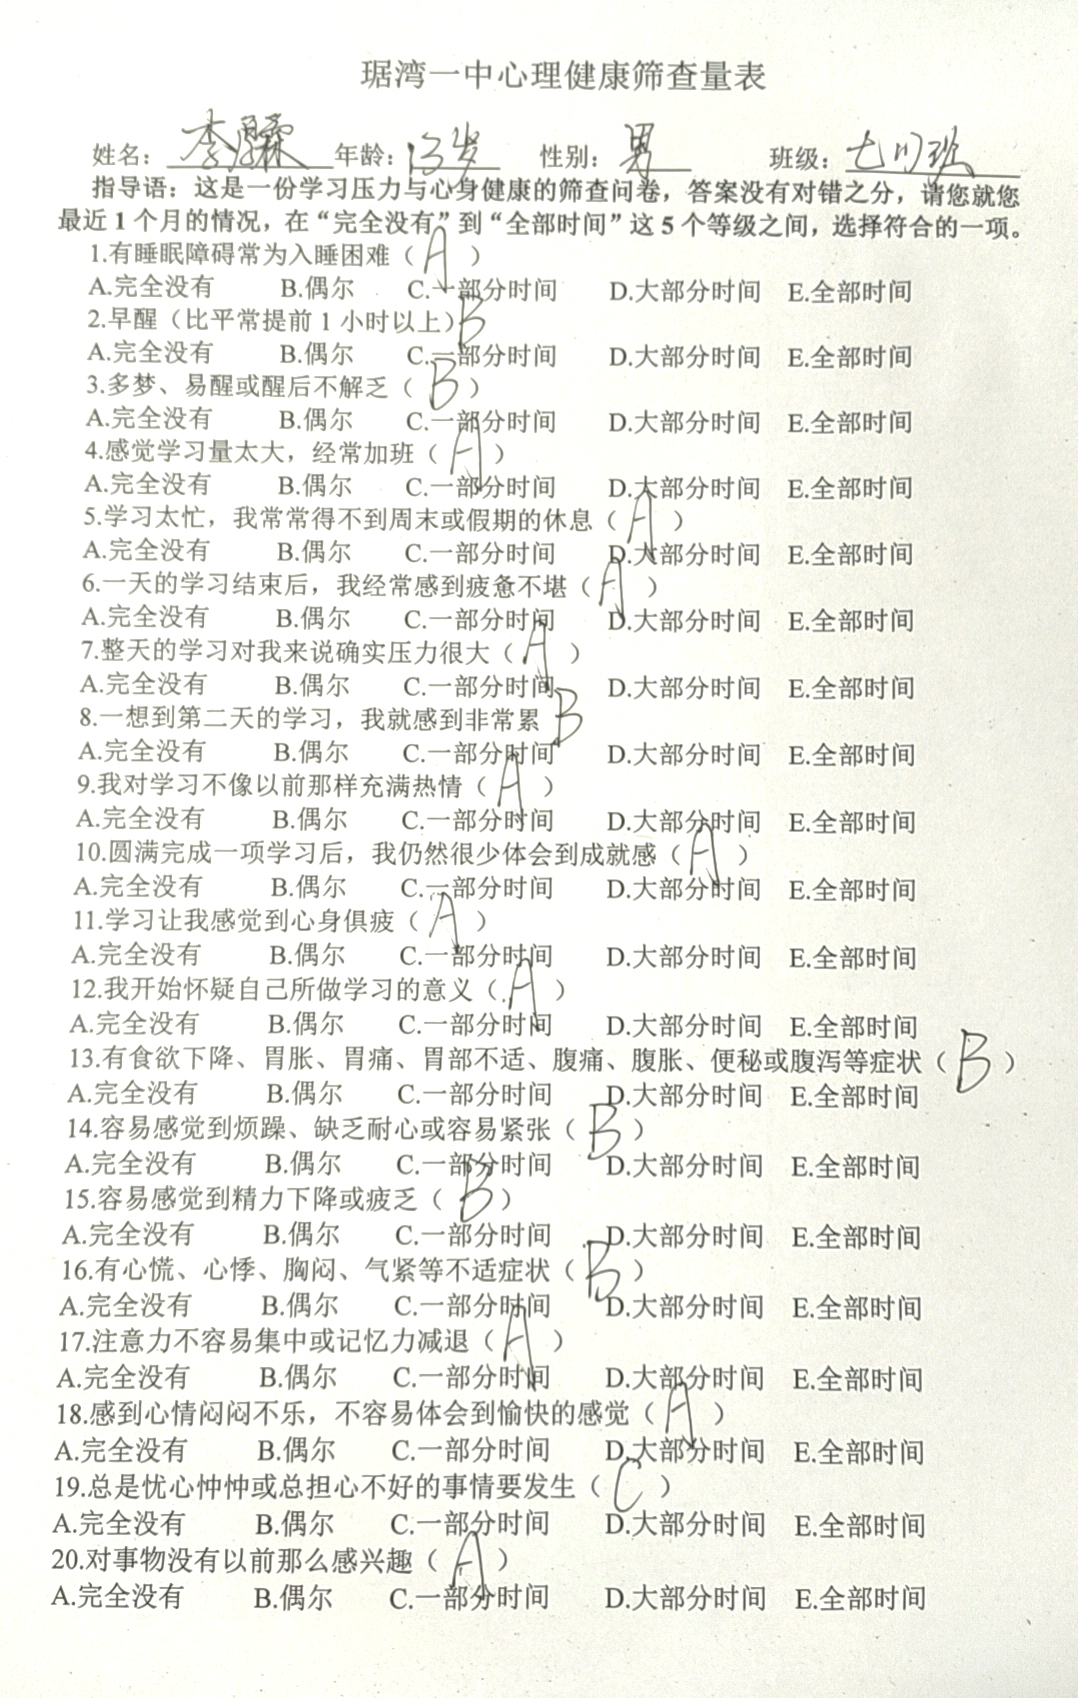 琚湾一中心理健康筛查量表
姓名：李 年龄：13岁 性别：男 班级：七(1)班
指导语：这是一份学习压力与心身健康的筛查问卷，答案没有对错之分，请您就您
最近1个月的情况，在“完全没有”到“全部时间”这5个等级之间，选择符合的一项。
1.有睡眠障碍常为入睡困难（A）
A.完全没有 B.偶尔 C.一部分时间 D.大部分时间 E.全部时间
2.早醒（比平常提前1小时以上）B
A.完全没有 B.偶尔 C.一部分时间 D.大部分时间 E.全部时间
3.多梦、易醒或醒后不解乏（B）
A.完全没有 B.偶尔 C.一部分时间 D.大部分时间 E.全部时间
4.感觉学习量太大，经常加班（A）
A.完全没有 B.偶尔 C.一部分时间 D.大部分时间 E.全部时间
5.学习太忙，我常常得不到周末或假期的休息（A）
A.完全没有 B.偶尔 C.一部分时间 D.大部分时间 E.全部时间
6.一天的学习结束后，我经常感到疲惫不堪（A）
A.完全没有 B.偶尔 C.一部分时间 D.大部分时间 E.全部时间
7.整天的学习对我来说确实压力很大（A）
A.完全没有 B.偶尔 C.一部分时间 D.大部分时间 E.全部时间
8.一想到第二天的学习，我就感到非常累 B
A.完全没有 B.偶尔 C.一部分时间 D.大部分时间 E.全部时间
9.我对学习不像以前那样充满热情（A）
A.完全没有 B.偶尔 C.一部分时间 D.大部分时间 E.全部时间
10.圆满完成一项学习后，我仍然很少体会到成就感（A）
A.完全没有 B.偶尔 C.一部分时间 D.大部分时间 E.全部时间
11.学习让我感觉到心身俱疲（A）
A.完全没有 B.偶尔 C.一部分时间 D.大部分时间 E.全部时间
12.我开始怀疑自己所做学习的意义（A）
A.完全没有 B.偶尔 C.一部分时间 D.大部分时间 E.全部时间
13.有食欲下降、胃胀、胃痛、胃部不适、腹痛、腹胀、便秘或腹泻等症状（B）
A.完全没有 B.偶尔 C.一部分时间 D.大部分时间 E.全部时间
14.容易感觉到烦躁、缺乏耐心或容易紧张（B）
A.完全没有 B.偶尔 C.一部分时间 D.大部分时间 E.全部时间
15.容易感觉到精力下降或疲乏（B）
A.完全没有 B.偶尔 C.一部分时间 D.大部分时间 E.全部时间
16.有心慌、心悸、胸闷、气紧等不适症状（B）
A.完全没有 B.偶尔 C.一部分时间 D.大部分时间 E.全部时间
17.注意力不容易集中或记忆力减退（A）
A.完全没有 B.偶尔 C.一部分时间 D.大部分时间 E.全部时间
18.感到心情闷闷不乐，不容易体会到愉快的感觉（A）
A.完全没有 B.偶尔 C.一部分时间 D.大部分时间 E.全部时间
19.总是忧心忡忡或总担心不好的事情要发生（C）
A.完全没有 B.偶尔 C.一部分时间 D.大部分时间 E.全部时间
20.对事物没有以前那么感兴趣（A）
A.完全没有 B.偶尔 C.一部分时间 D.大部分时间 E.全部时间